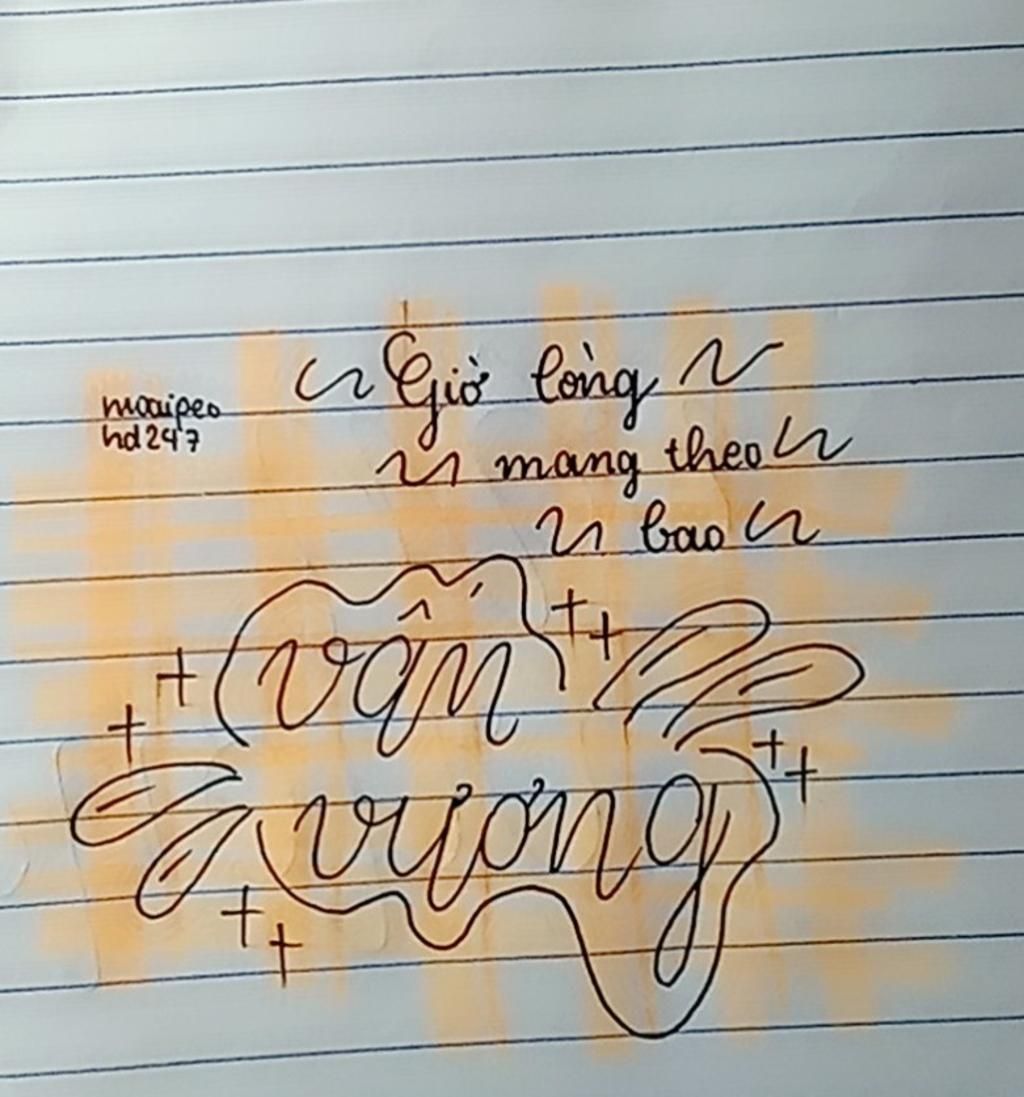 Giờ lòng
maaipeo
hd247
mang theo
bao
vấn
vương